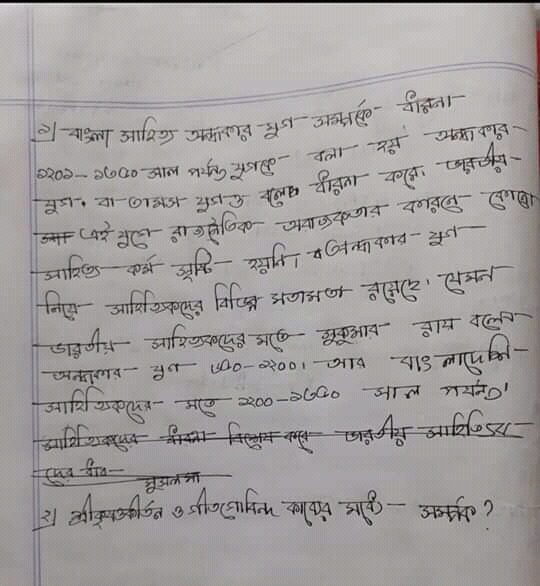 ১) বাংলা সাহিত্য অন্ধকার যুগ সম্পর্কে ধারনা
১২০১-১৩৫০ সাল পর্যন্ত যুগকে বলা হয় অন্ধকার
যুগ। বা তামস যুগ ও বলে ধারনা করে। ভারতীয়
এই যুগে রাজনৈতিক অরাজকতার কারনে কোনো
সাহিত্য কর্ম সৃষ্টি হয়নি। অন্ধকার যুগ
নিয়ে সাহিত্যিকদের বিভিন্ন মতামত রয়েছে। যেমন
ভারতীয় সাহিত্যিকদের মতে সুকুমার রায় বলেন
অন্ধকার যুগ ৬৫০-১২০০। আর বাংলাদেশি
সাহিত্যিকদের মতে ১২০০-১৩৫০ সাল পর্যন্ত।
সাহিত্যিকদের ধারনা বিশেষ করে ভারতীয় সাহিত্যিক
দের
২) শ্রীকৃষ্ণকীর্তন ও গীতগোবিন্দ কাব্যের মধ্যে সম্পর্ক?